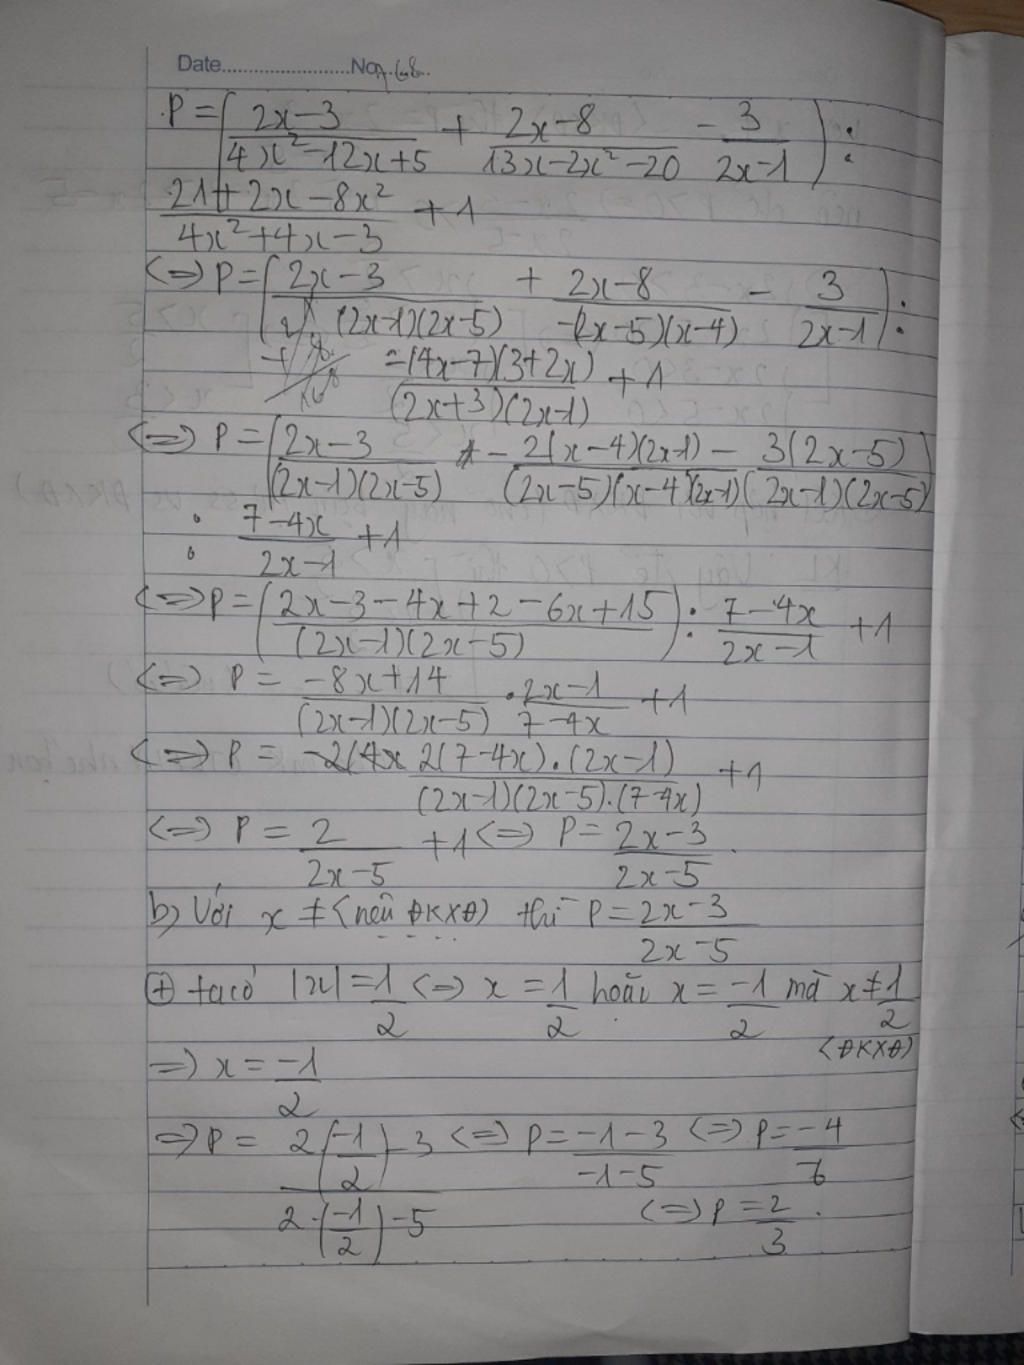 Date........................No.........
P = ( (2x-3)/(4x²-12x+5) + (2x-8)/(13x-2x²-20) - 3/(2x-1) ) :
(21+2x-8x²)/(4x²+4x-3) + 1
<=> P = ( (2x-3)/((2x-1)(2x-5)) + (2x-8)/(-(2x-5)(x-4)) - 3/(2x-1) ) :
(=(4x-7)(3+2x))/((2x+3)(2x-1)) + 1
<=> P = ( (2x-3)/((2x-1)(2x-5)) - (2(x-4)(2x-1))/((2x-5)(x-4)(2x-1)) - (3(2x-5))/((2x-1)(2x-5)) )
: (7-4x)/(2x-1) + 1
<=> P = ( (2x-3-4x+2-6x+15)/((2x-1)(2x-5)) ) : (7-4x)/(2x-1) + 1
<=> P = (-8x+14)/((2x-1)(2x-5)) . (2x-1)/(7-4x) + 1
<=> P = -2(4x (2(7-4x).(2x-1))/((2x-1)(2x-5).(7-4x)) + 1
<=> P = 2/(2x-5) + 1 <=> P = (2x-3)/(2x-5).
b, Với x ≠ (nêu ĐKXĐ) thì P = (2x-3)/(2x-5)
(+) ta có |x| = 1/2 <=> x = 1/2 hoặc x = -1/2 mà x ≠ 1/2
(ĐKXĐ)
=> x = -1/2
=> P = (2(-1/2)-3)/(2.(-1/2)-5) <=> P = (-1-3)/(-1-5) <=> P = -4/6
<=> P = 2/3.